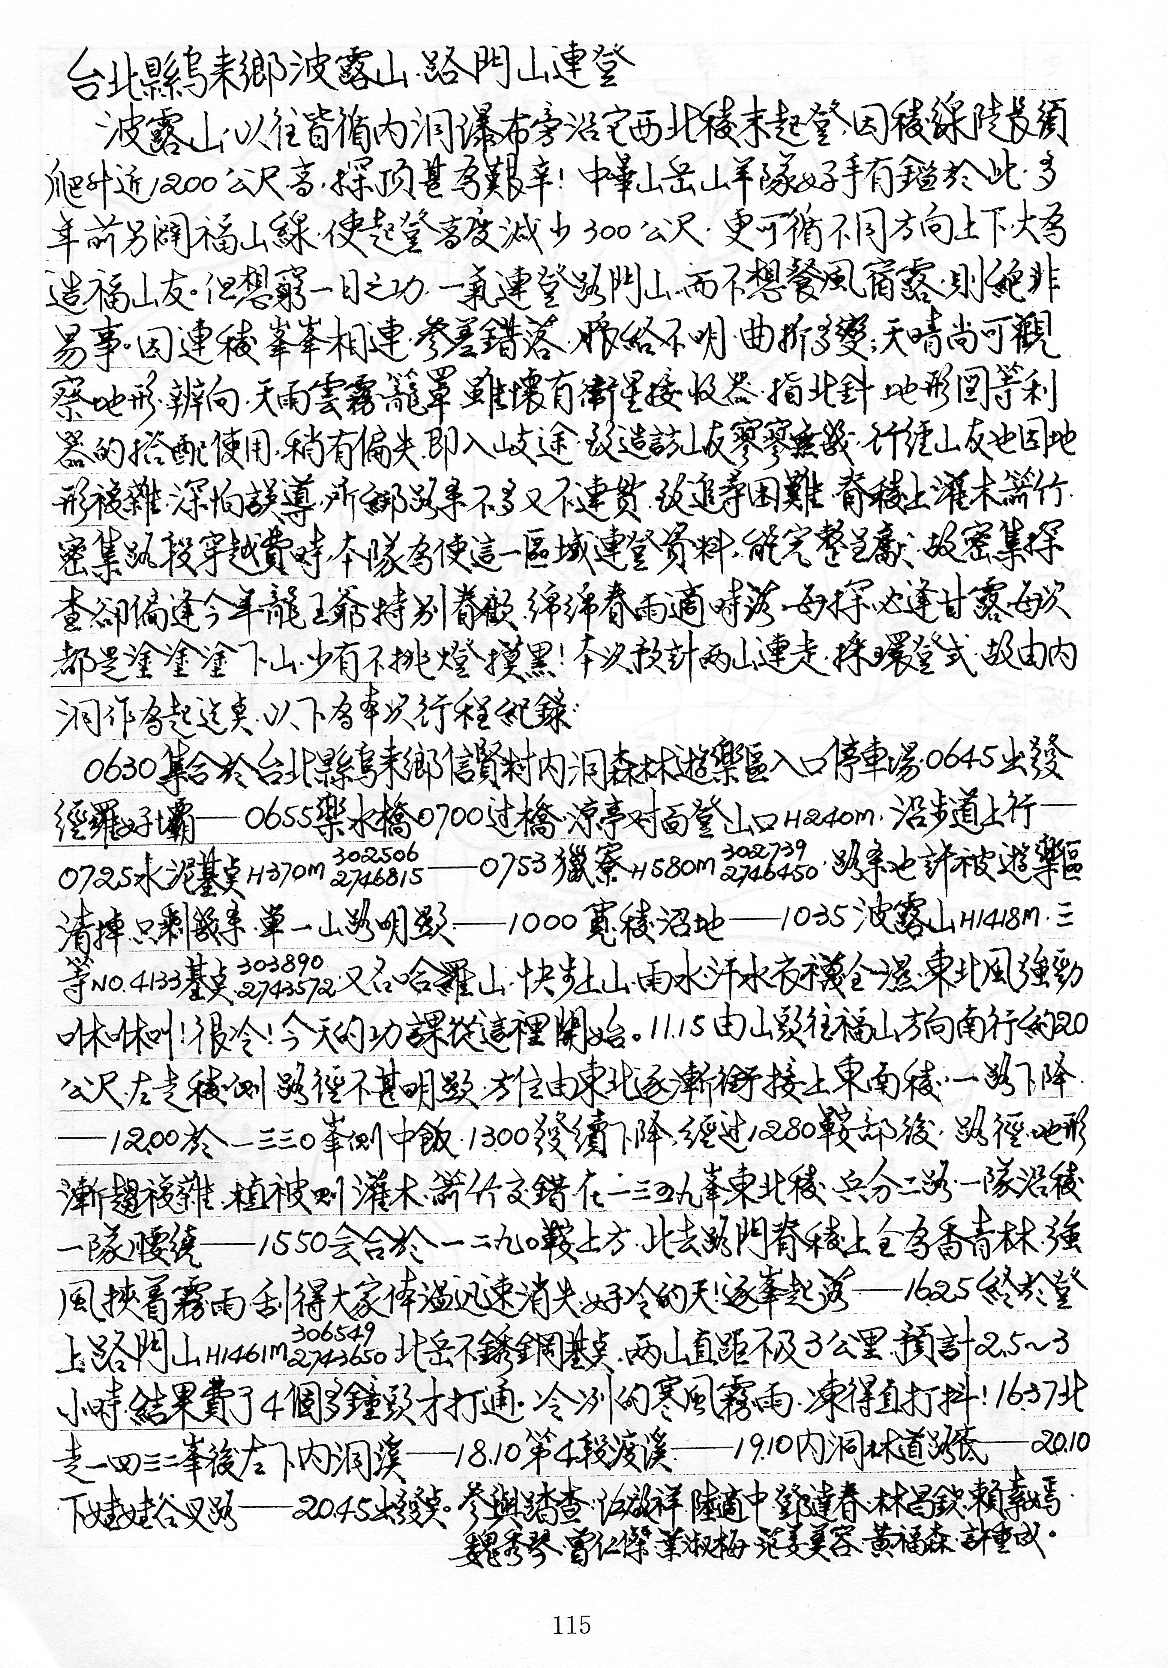 台北縣烏來鄉波露山.路門山連登
波露山,以往皆循內洞瀑布旁沿它西北稜末起登,因稜線陡長須
爬升近1200公尺高,探頂甚為艱辛!中華山岳山羊隊好手有鑑於此.多
年前另闢福山線.使起登高度減少300公尺.更可循不同方向上下大為
造福山友。但想窮一日之功.一氣連登路門山.而不想餐風宿露,則絕非
易事.因連稜峯峯相連.參差錯落.脈絡不明.曲折多變;天晴尚可觀
察地形.辨向.天雨雲霧籠罩雖壞有衛星接收器.指北針.地形图等利
器的搭配使用.稍有偏失.即入岐途.致造訪山友寥寥無幾.行經山友也因地
形複雜.深怕誤導.所綁路条不多又不連貫.致追尋困難.脊稜上灌木箭竹
密集路段穿越費時.本隊為使這一區域連登資料.能完整呈獻.故密集探
查卻偏逢今年龍王爺特別眷顧.綿綿春雨適時落.每探必逢甘露每次
都是塗塗塗下山.少有不挑燈摸黑!本次預計兩山連走.採環登式.故由內
洞作為起迄点.以下為本次行程紀錄:
0630集合於台北縣烏來鄉信賢村內洞森林遊樂區入口停車場.0645出發
經羅好壩——0655樂水橋0700过橋.涼亭对面登山口H240m.沿步道上行——
0725水泥基点H370m 302506 2746815——0753獵寮H580m 302739 2746450.路条也許被遊樂區
清掉.只剩幾条.單一山路明顯——1000寬稜沼地——1035波露山H1418m.三
等NO.4133基点 303890 2743572又名哈羅山.快步上山.雨水汗水衣襪全濕.東北風強勁
咻咻叫!很冷!今天的功課從這裡開始。11.15由山頭往福山方向南行約20
公尺.左走稜側路徑不甚明顯.方位由東北逐漸銜接上東南稜.一路下降.
——1200於一三三0峯側中飯.1300發續下降.經过1280鞍部後.路徑.地形
漸趨複雜.植被則灌木.箭竹交錯在一三五九峯東北稜.兵分二路.一隊沿稜
一隊腰繞——1550会合於一二九0鞍上方.此去路門脊稜上全為香青林.強
風挾著霧雨刮得大家体溫迅速消失.好冷的天!逐峯起落——1625終於登
上路門山H1461m 306549 2743650北岳不銹鋼基点.兩山直距不及3公里.預計2.5~3
小時.結果費了4個多鐘頭才打通.冷冽的寒風霧雨.凍得直打抖!1637北
走一四三二峯後左下內洞溪——18.10第4段渡溪——19.10內洞林道路底——20.10
下娃娃谷叉路——20.45出發点。參與踏查.江啟祥.陸適中.鄧達春.林昌欽.賴素嫣.
魏秀琴.曾仁傑.葉淑梅.范姜美容.黃福森.許重成.
115